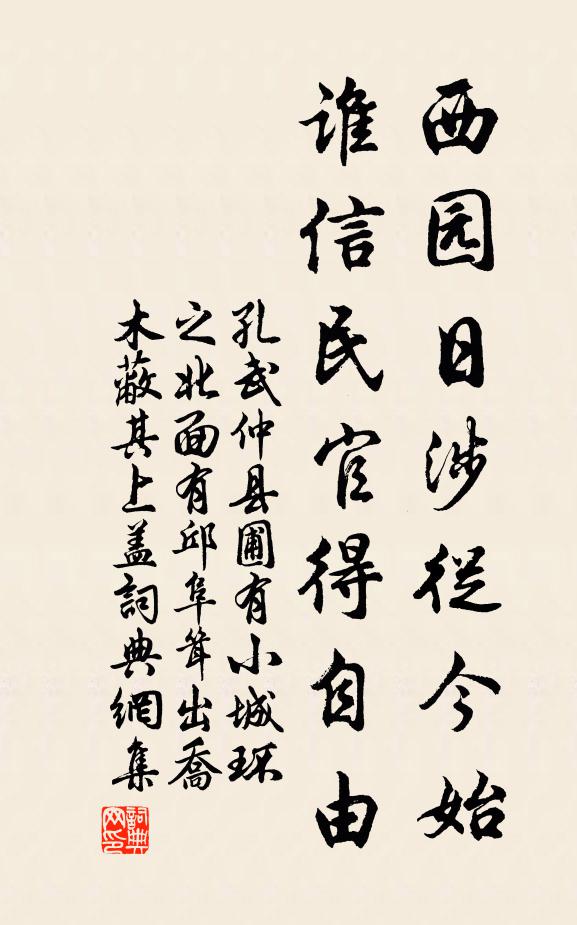 西园日涉從今始
谁信民官得自由
孔武仲县圃有小城环
之北面有邱阜耸出喬
木蔽其上盖詞典網集
詞典网印